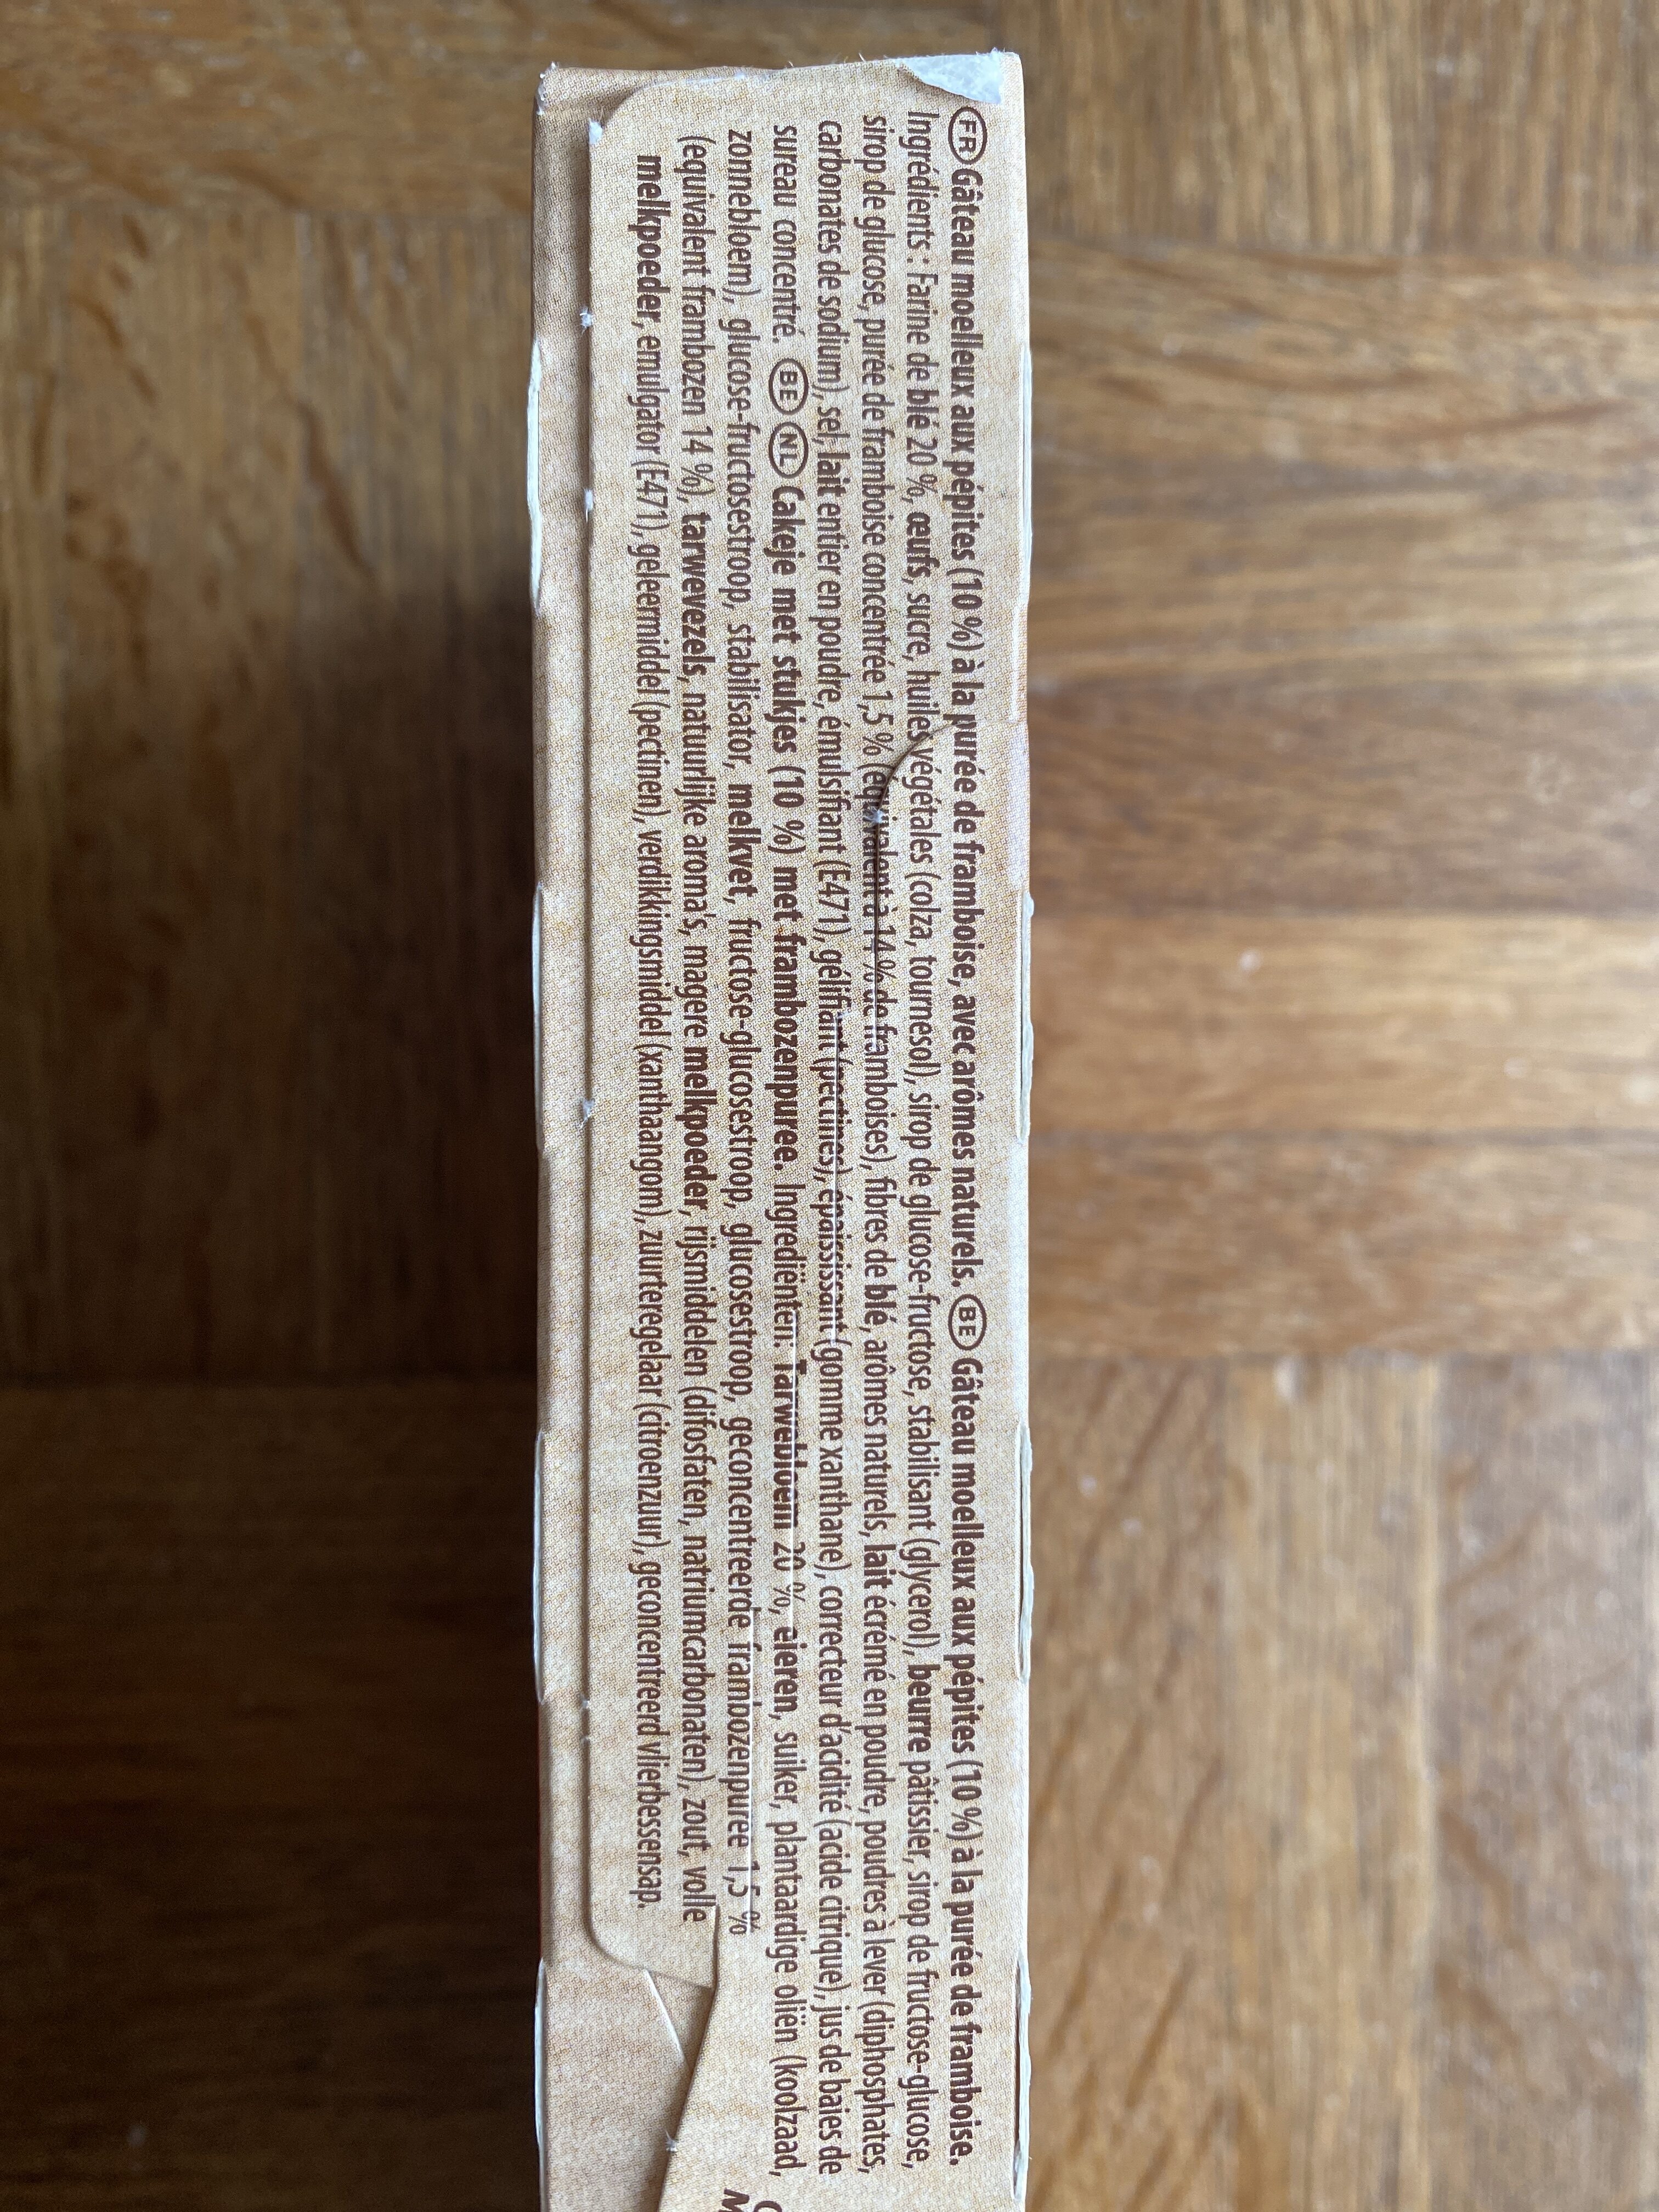 FR Gâteau moelleux aux pépites (10 %) à la purée de framboise, avec arômes naturels. BE Gâteau moelleux aux pépites (10 %) à la purée de framboise.
Ingrédients : Farine de blé 20 %, œufs, sucre, huiles végétales (colza, tournesol), sirop de glucose-fructose, stabilisant (glycerol), beurre pâtissier, sirop de fructose-glucose,
sirop de glucose, purée de framboise concentrée 1,5 % (équivalent à 14 % de framboises), fibres de blé, arômes naturels, lait écrémé en poudre, poudres à lever (diphosphates,
carbonates de sodium), sel, lait entier en poudre, émulsifiant (E471), gélifiant (pectines), épaississant (gomme xanthane), correcteur d'acidité (acide citrique), jus de baies de
sureau concentré. BE NL Cakeje met stukjes (10 %) met frambozenpuree. Ingrediënten: Tarwebloem 20 %, eieren, suiker, plantaardige oliën (koolzaad,
zonnebloem), glucose-fructosestroop, stabilisator, melkvet, fructose-glucosestroop, glucosestroop, geconcentreerde frambozenpuree 1,5 %
(equivalent frambozen 14 %), tarwevezels, natuurlijke aroma's, magere melkpoeder, rijsmiddelen (difosfaten, natriumcarbonaten), zout, volle
melkpoeder, emulgator (E471), geleermiddel (pectinen), verdikkingsmiddel (xanthaangom), zuurteregelaar (citroenzuur), geconcentreerd vlierbessensap.